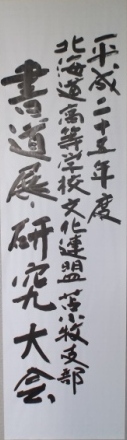 平成二十五年度
北海道高等学校文化連盟苫小牧支部
書道展・研究大会